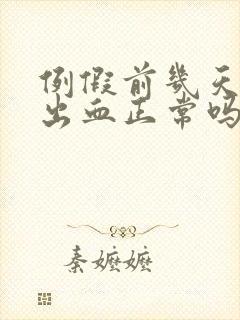 例假前几天
出血正常吗
秦嬷嬷